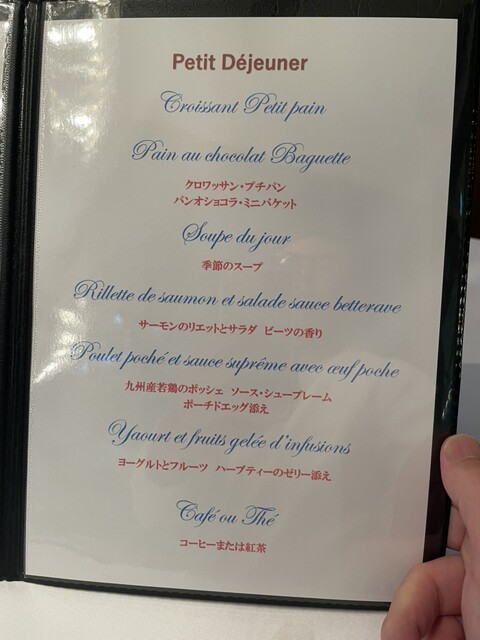 Petit Déjeuner
Croissant Petit pain
Pain au chocolat Baguette
クロワッサン・プチパン
パンオショコラ・ミニバケット
Soupe du jour
季節のスープ
Rillette de saumon et salade sauce betterave
サーモンのリエットとサラダ ビーツの香り
Poulet poché et sauce suprême avec œuf poche
九州産若鶏のポッシェ ソース・シュープレーム
ポーチドエッグ添え
Yaourt et fruits gelée d'infusions
ヨーグルトとフルーツ ハーブティーのゼリー添え
Café ou Thé
コーヒーまたは紅茶